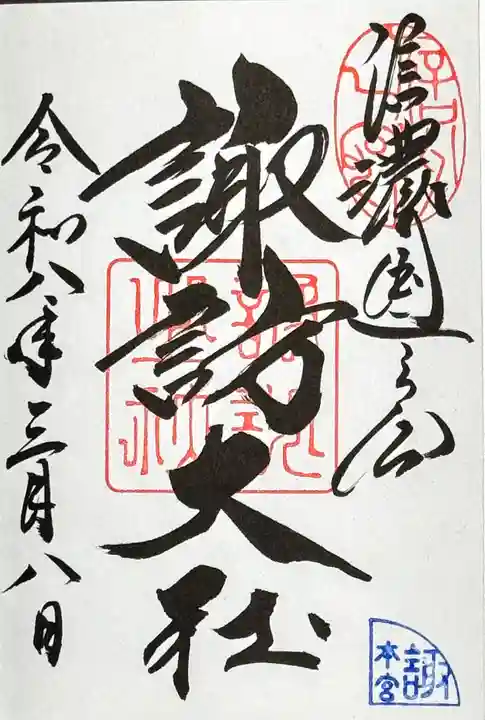 信濃國一之宮
諏訪大社
令和八年三月八日
諏
本宮